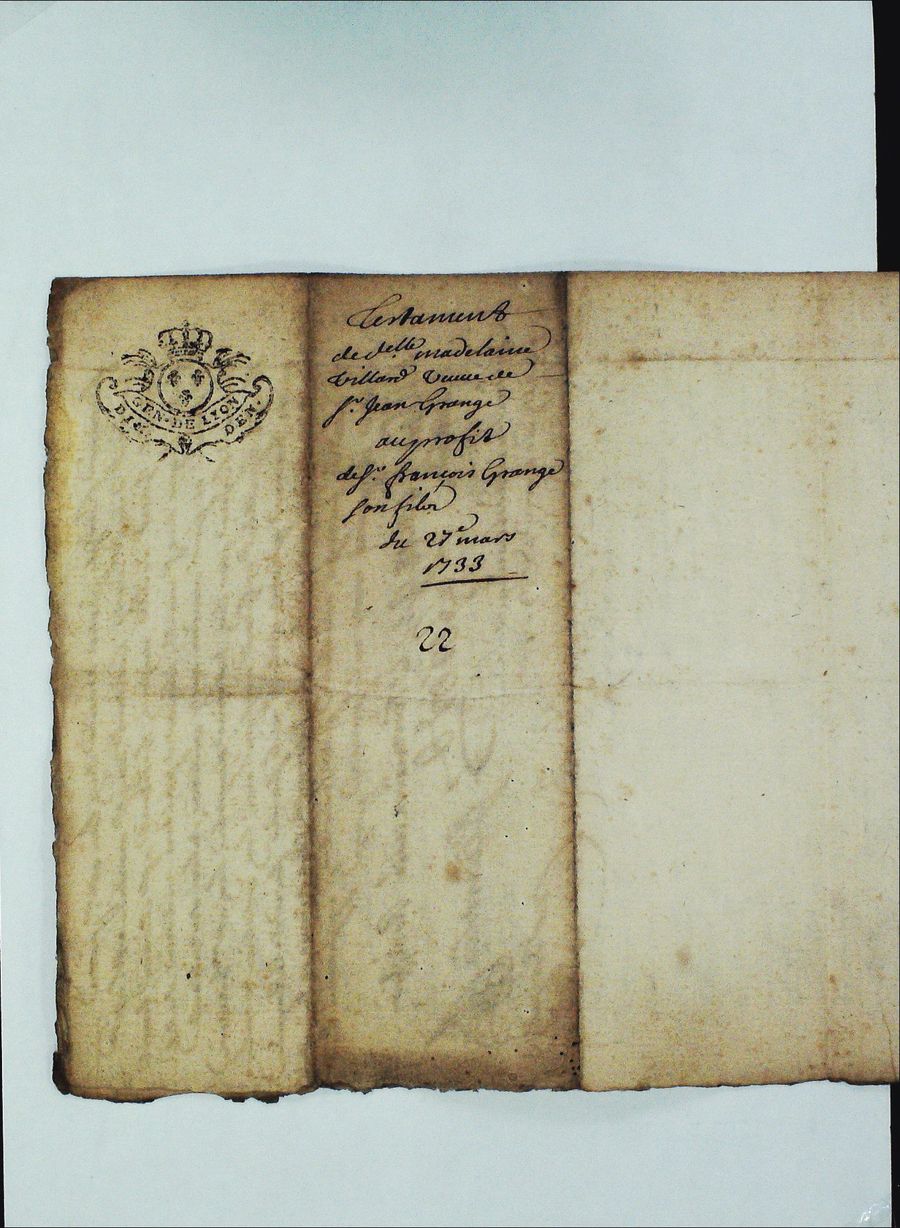 GEN·DE LYON
DIX DEN
Testament
de delle madelaine
Villard veuue de
Sr. Jean Grange
au profit
de Sr. françois Grange
son fils
du 27e mars
1733
22